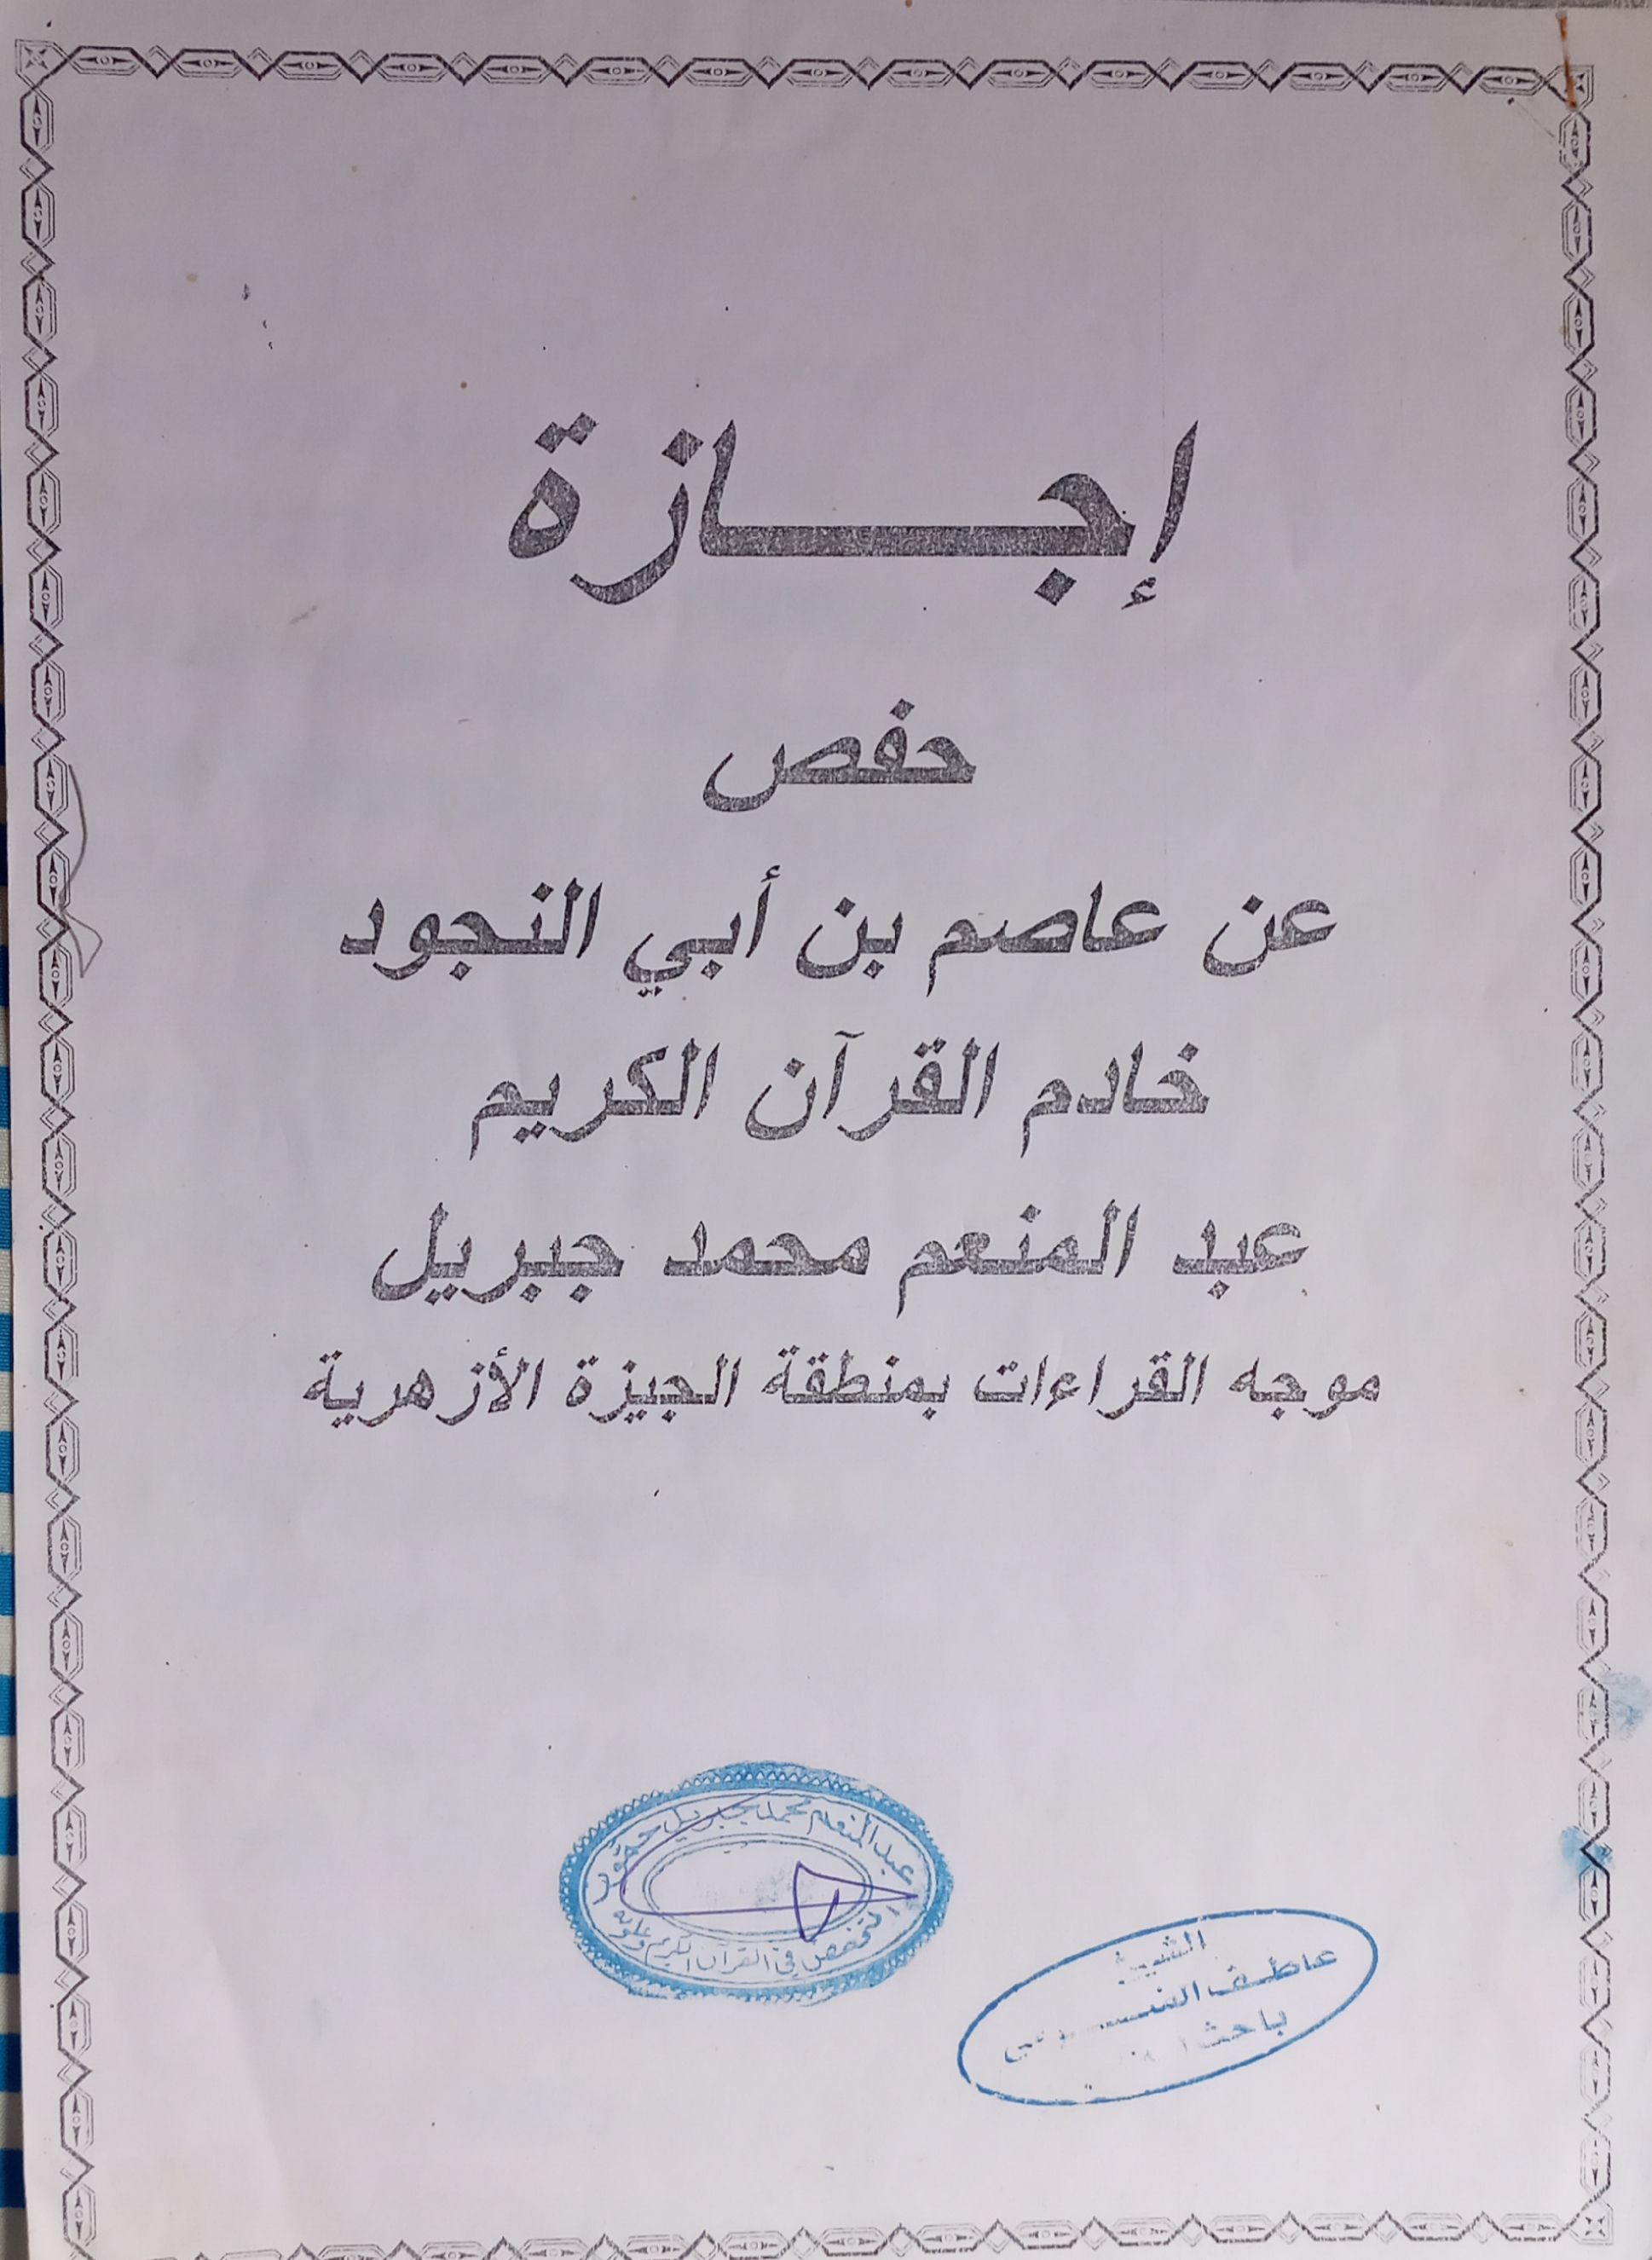 إجازة
حفص
عن عاصم بن أبي النجود
خادم القرآن الكريم
عبد المنعم محمد جبريل
موجه القراءات بمنطقة الجيزة الأزهرية
عبد المنعم محمد جبريل
المتخصص في القرآن الكريم وعلومه
الشيخ
عاطف
باحث